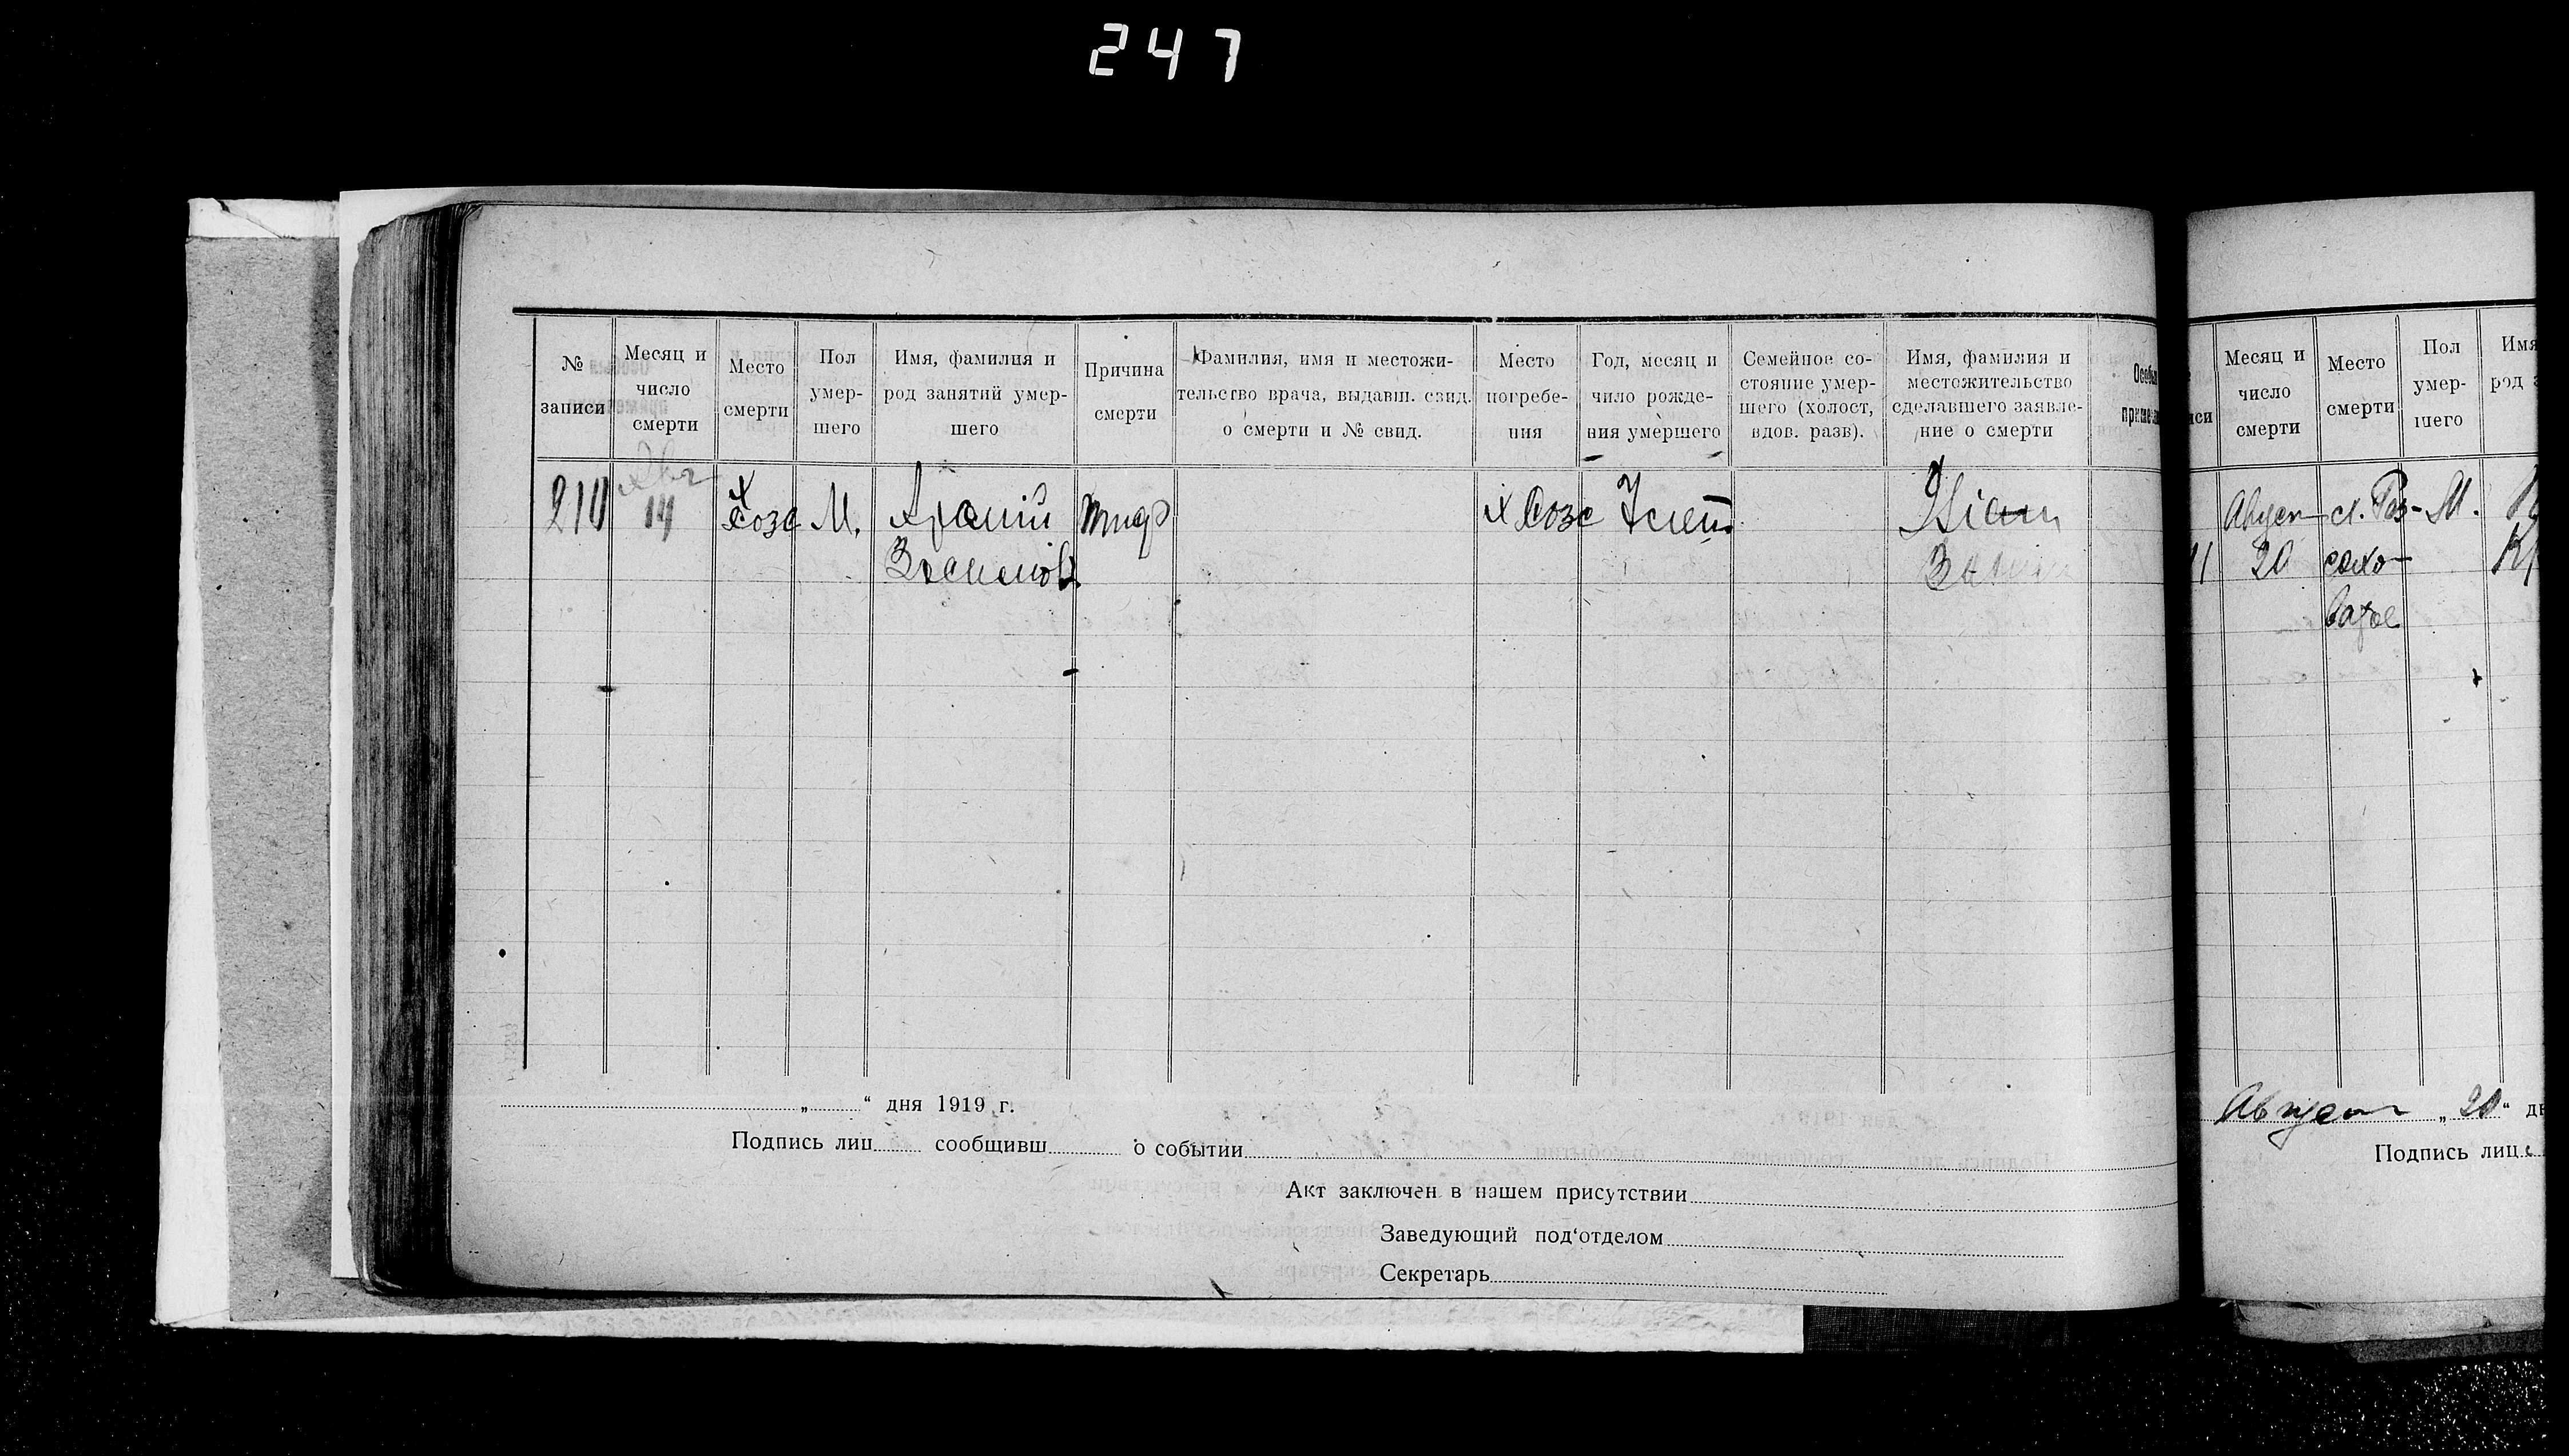 247
№ записи
Месяц и число смерти
Место смерти
Пол умер-шего
Имя, фамилия и род занятий умер-шего
Причина смерти
Фамилия, имя и местожи-тельство врача, выдавш. свид. о смерти и № свид.
Место погребе-ния
Год, месяц и чило рожде-ния умершего
Семейное со-стояние умер-шего (холост, вдов. разв).
Имя, фамилия и местожительство сделавшего заявле-ние о смерти
210
Авг
14
М.
тиф
7 лет
„ “ дня 1919 г.
Подпись лиц сообщивш о событии
Акт заключен в нашем присутствии
Заведующий под‘отделом
Секретарь
иси
Месяц и число смерти
Место смерти
Пол умер-шего
Имя
род з
11
Август
20
М.
Август „ 20 “ дн
Подпись лиц